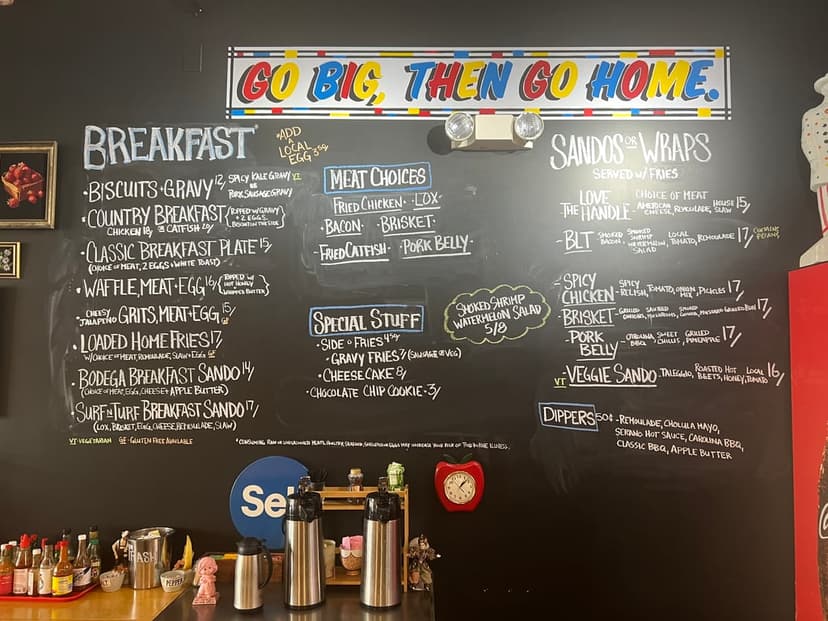 GO BIG, THEN GO HOME.
BREAKFAST
*ADD
A
LOCAL
EGG 3.50
• BISCUITS + GRAVY 12/ SPICY KALE GRAVY VT
OR
PORK SAUSAGE GRAVY
• COUNTRY BREAKFAST/
CHICKEN 18/ CATFISH 20/
(TOPPED W/ GRAVY
+ 2 EGGS,
BISCUIT ON THE SIDE)
• CLASSIC BREAKFAST PLATE 15/
(CHOICE OF MEAT, 2 EGGS + WHITE TOAST)
• WAFFLE, MEAT + EGG 16/
(TOPPED W/
HOT HONEY
WHIPPED BUTTER)
• CHEESY
JALAPEÑO GRITS, MEAT + EGG 15/
GF
• LOADED HOME FRIES 17/
W/ CHOICE OF MEAT, REMOULADE, SLAW + EGG GF
• BODEGA BREAKFAST SANDO 14/
(CHOICE OF MEAT, EGG, CHEESE + APPLE BUTTER)
• SURF N TURF BREAKFAST SANDO 17/
(LOX, BRISKET, EGG, CHEESE, REMOULADE, SLAW)
VT-VEGETARIAN GF-GLUTEN FREE AVAILABLE
MEAT CHOICES
FRIED CHICKEN • LOX
• BACON • BRISKET •
FRIED CATFISH • PORK BELLY
SPECIAL STUFF
• SIDE O FRIES 4.50
• GRAVY FRIES 7 (SAUSAGE OR VEG)
• CHEESECAKE 8/
• CHOCOLATE CHIP COOKIE - 3/
SMOKED SHRIMP
WATERMELON SALAD
5/8
*CONSUMING RAW OR UNDERCOOKED MEATS, POULTRY, SEAFOOD, SHELLFISH OR EGGS MAY INCREASE YOUR RISK OF FOODBORNE ILLNESS.
SANDOS OR WRAPS
SERVED W/ FRIES
• LOVE
THE HANDLE - CHOICE OF MEAT
AMERICAN CHEESE, REMOULADE, HOUSE SLAW 15/
• BLT - SMOKED BACON, SMOKED SHRIMP WATERMELON SALAD, LOCAL TOMATO, REMOULADE 17/ CONTAINS PECANS
• SPICY
CHICKEN - SPICY RELISH, TOMATO, ONION MIX, PICKLES 17/
• BRISKET - 17/
• PORK
BELLY - CAROLINA BBQ, SWEET CHILIS, GRILLED PINEAPPLE 17/
VT • VEGGIE SANDO - TALEGGIO, ROASTED BEETS, HOT HONEY, LOCAL TOMATO 16/
DIPPERS 50¢ - REMOULADE, CHOLULA MAYO,
SERANO HOT SAUCE, CAROLINA BBQ,
CLASSIC BBQ, APPLE BUTTER
Sel
TRASH
PEPPER